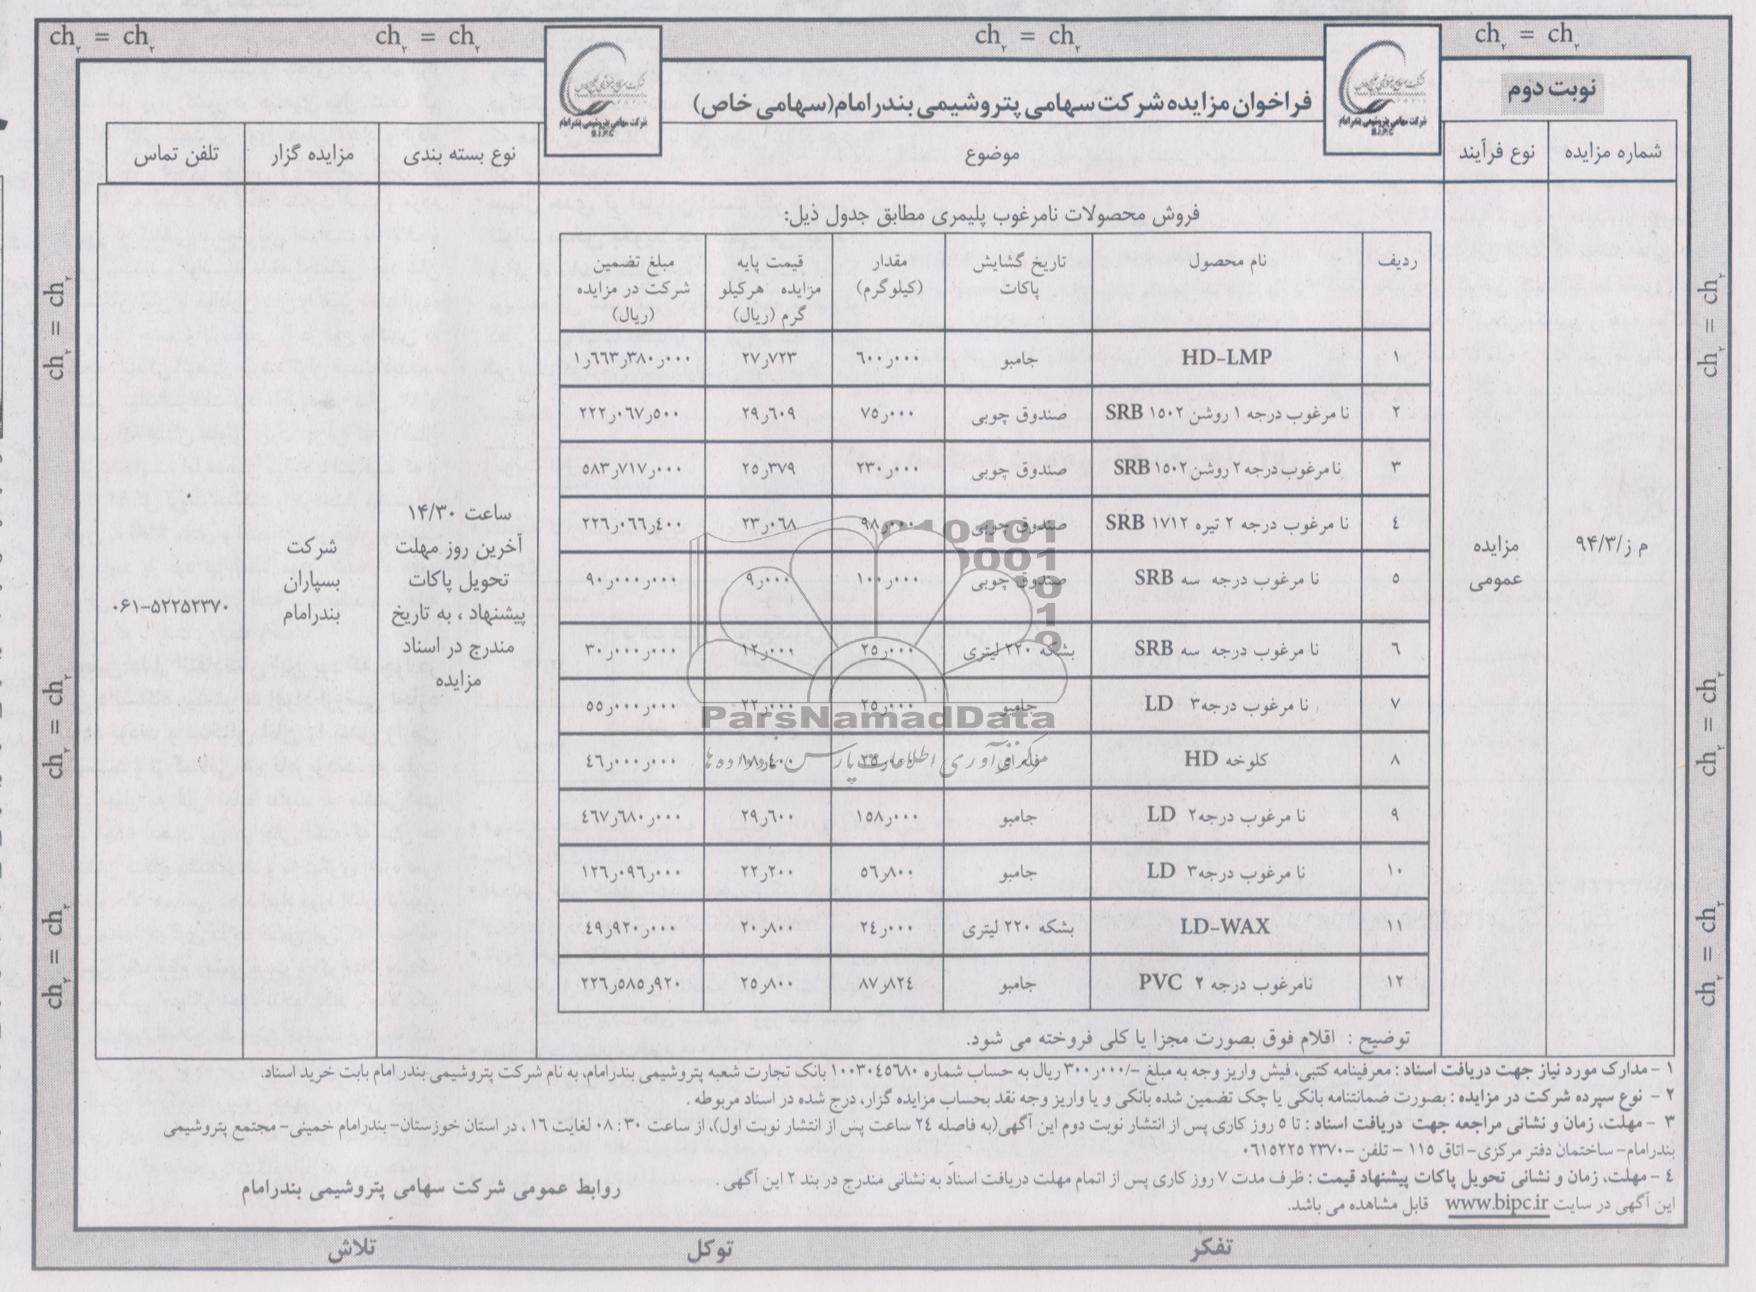 ch₂ = ch₂ ch₂ = ch₂ ch₂ = ch₂ ch₂ = ch₂
نوبت دوم
فراخوان مزایده شرکت سهامی پتروشیمی بندرامام(سهامی خاص)
شرکت سهامی پتروشیمی بندرامام
B.I.P.C
شرکت سهامی پتروشیمی بندرامام
B.I.P.C
شماره مزایده نوع فرآیند موضوع نوع بسته بندی مزایده گزار تلفن تماس
م ز/۹۴/۳
مزایده
عمومی
فروش محصولات نامرغوب پلیمری مطابق جدول ذیل:
ردیف نام محصول تاریخ گشایش پاکات مقدار (کیلوگرم) قیمت پایه مزایده هرکیلو گرم (ریال) مبلغ تضمین شرکت در مزایده (ریال)
۱ HD-LMP جامبو ۶۰۰٫۰۰۰ ۲۷٫۷۲۳ ۱٫۶۶۳٫۳۸۰٫۰۰۰
۲ نا مرغوب درجه ۱ روشن SRB ۱۵۰۲ صندوق چوبی ۷۵٫۰۰۰ ۲۹٫۶۰۹ ۲۲۲٫۰۶۷٫۵۰۰
۳ نامرغوب درجه۲ روشن SRB ۱۵۰۲ صندوق چوبی ۲۳۰٫۰۰۰ ۲۵٫۳۷۹ ۵۸۳٫۷۱۷٫۰۰۰
۴ نا مرغوب درجه ۲ تیره SRB ۱۷۱۲ صندوق چوبی ۹۸٫۰۰۰ ۲۳٫۰۶۸ ۲۲۶٫۰۶۶٫۴۰۰
۵ نا مرغوب درجه سه SRB صندوق چوبی ۱۰۰٫۰۰۰ ۹٫۰۰۰ ۹۰٫۰۰۰٫۰۰۰
۶ نا مرغوب درجه سه SRB بشکه ۲۲۰ لیتری ۲۵٫۰۰۰ ۱۲٫۰۰۰ ۳۰٫۰۰۰٫۰۰۰
۷ نا مرغوب درجه۳ LD جامبو ۲۵٫۰۰۰ ۲۲٫۰۰۰ ۵۵٫۰۰۰٫۰۰۰
۸ کلوخه HD ۱۸٫۴۰۰ ۴۶٫۰۰۰٫۰۰۰
۹ نا مرغوب درجه۲ LD جامبو ۱۵۸٫۰۰۰ ۲۹٫۶۰۰ ۴۶۷٫۶۸۰٫۰۰۰
۱۰ نا مرغوب درجه۳ LD جامبو ۵۶٫۸۰۰ ۲۲٫۲۰۰ ۱۲۶٫۰۹۶٫۰۰۰
۱۱ LD-WAX بشکه ۲۲۰ لیتری ۲۴٫۰۰۰ ۲۰٫۸۰۰ ۴۹٫۹۲۰٫۰۰۰
۱۲ نامرغوب درجه ۲ PVC جامبو ۸۷٫۸۲۴ ۲۵٫۸۰۰ ۲۲۶٫۵۸۵٫۹۲۰
توضیح : اقلام فوق بصورت مجزا یا کلی فروخته می شود.
ساعت ۱۴/۳۰
آخرین روز مهلت
تحویل پاکات
پیشنهاد ، به تاریخ
مندرج در اسناد
مزایده
شرکت
بسپاران
بندرامام
۰۶۱-۵۲۲۵۲۳۷۰
ParsNamadData
فن آوری اطلاعات پارس نماد داده ها
۱ - مدارک مورد نیاز جهت دریافت اسناد : معرفینامه کتبی، فیش واریز وجه به مبلغ -/۳۰۰٫۰۰۰ ریال به حساب شماره ۱۰۰۳۰۴۵۶۸۰ بانک تجارت شعبه پتروشیمی بندرامام، به نام شرکت پتروشیمی بندر امام بابت خرید اسناد.
۲ - نوع سپرده شرکت در مزایده : بصورت ضمانتنامه بانکی یا چک تضمین شده بانکی و یا واریز وجه نقد بحساب مزایده گزار، درج شده در اسناد مربوطه .
۳ - مهلت، زمان و نشانی مراجعه جهت دریافت اسناد : تا ۵ روز کاری پس از انتشار نوبت دوم این آگهی(به فاصله ۲۴ ساعت پس از انتشار نوبت اول)، از ساعت ۳۰ : ۰۸ لغایت ۱۶ ، در استان خوزستان- بندرامام خمینی- مجتمع پتروشیمی
بندرامام- ساختمان دفتر مرکزی- اتاق ۱۱۵ - تلفن -۰۶۱۵۲۲۵۲۳۷۰
۴ - مهلت، زمان و نشانی تحویل پاکات پیشنهاد قیمت : ظرف مدت ۷ روز کاری پس از اتمام مهلت دریافت اسناد به نشانی مندرج در بند ۲ این آگهی .
این آگهی در سایت www.bipc.ir قابل مشاهده می باشد.
روابط عمومی شرکت سهامی پتروشیمی بندرامام
ch₂ = ch₂ ch₂ = ch₂ ch₂ = ch₂
ch₂ = ch₂ ch₂ = ch₂ ch₂ = ch₂
تفکر توکل تلاش